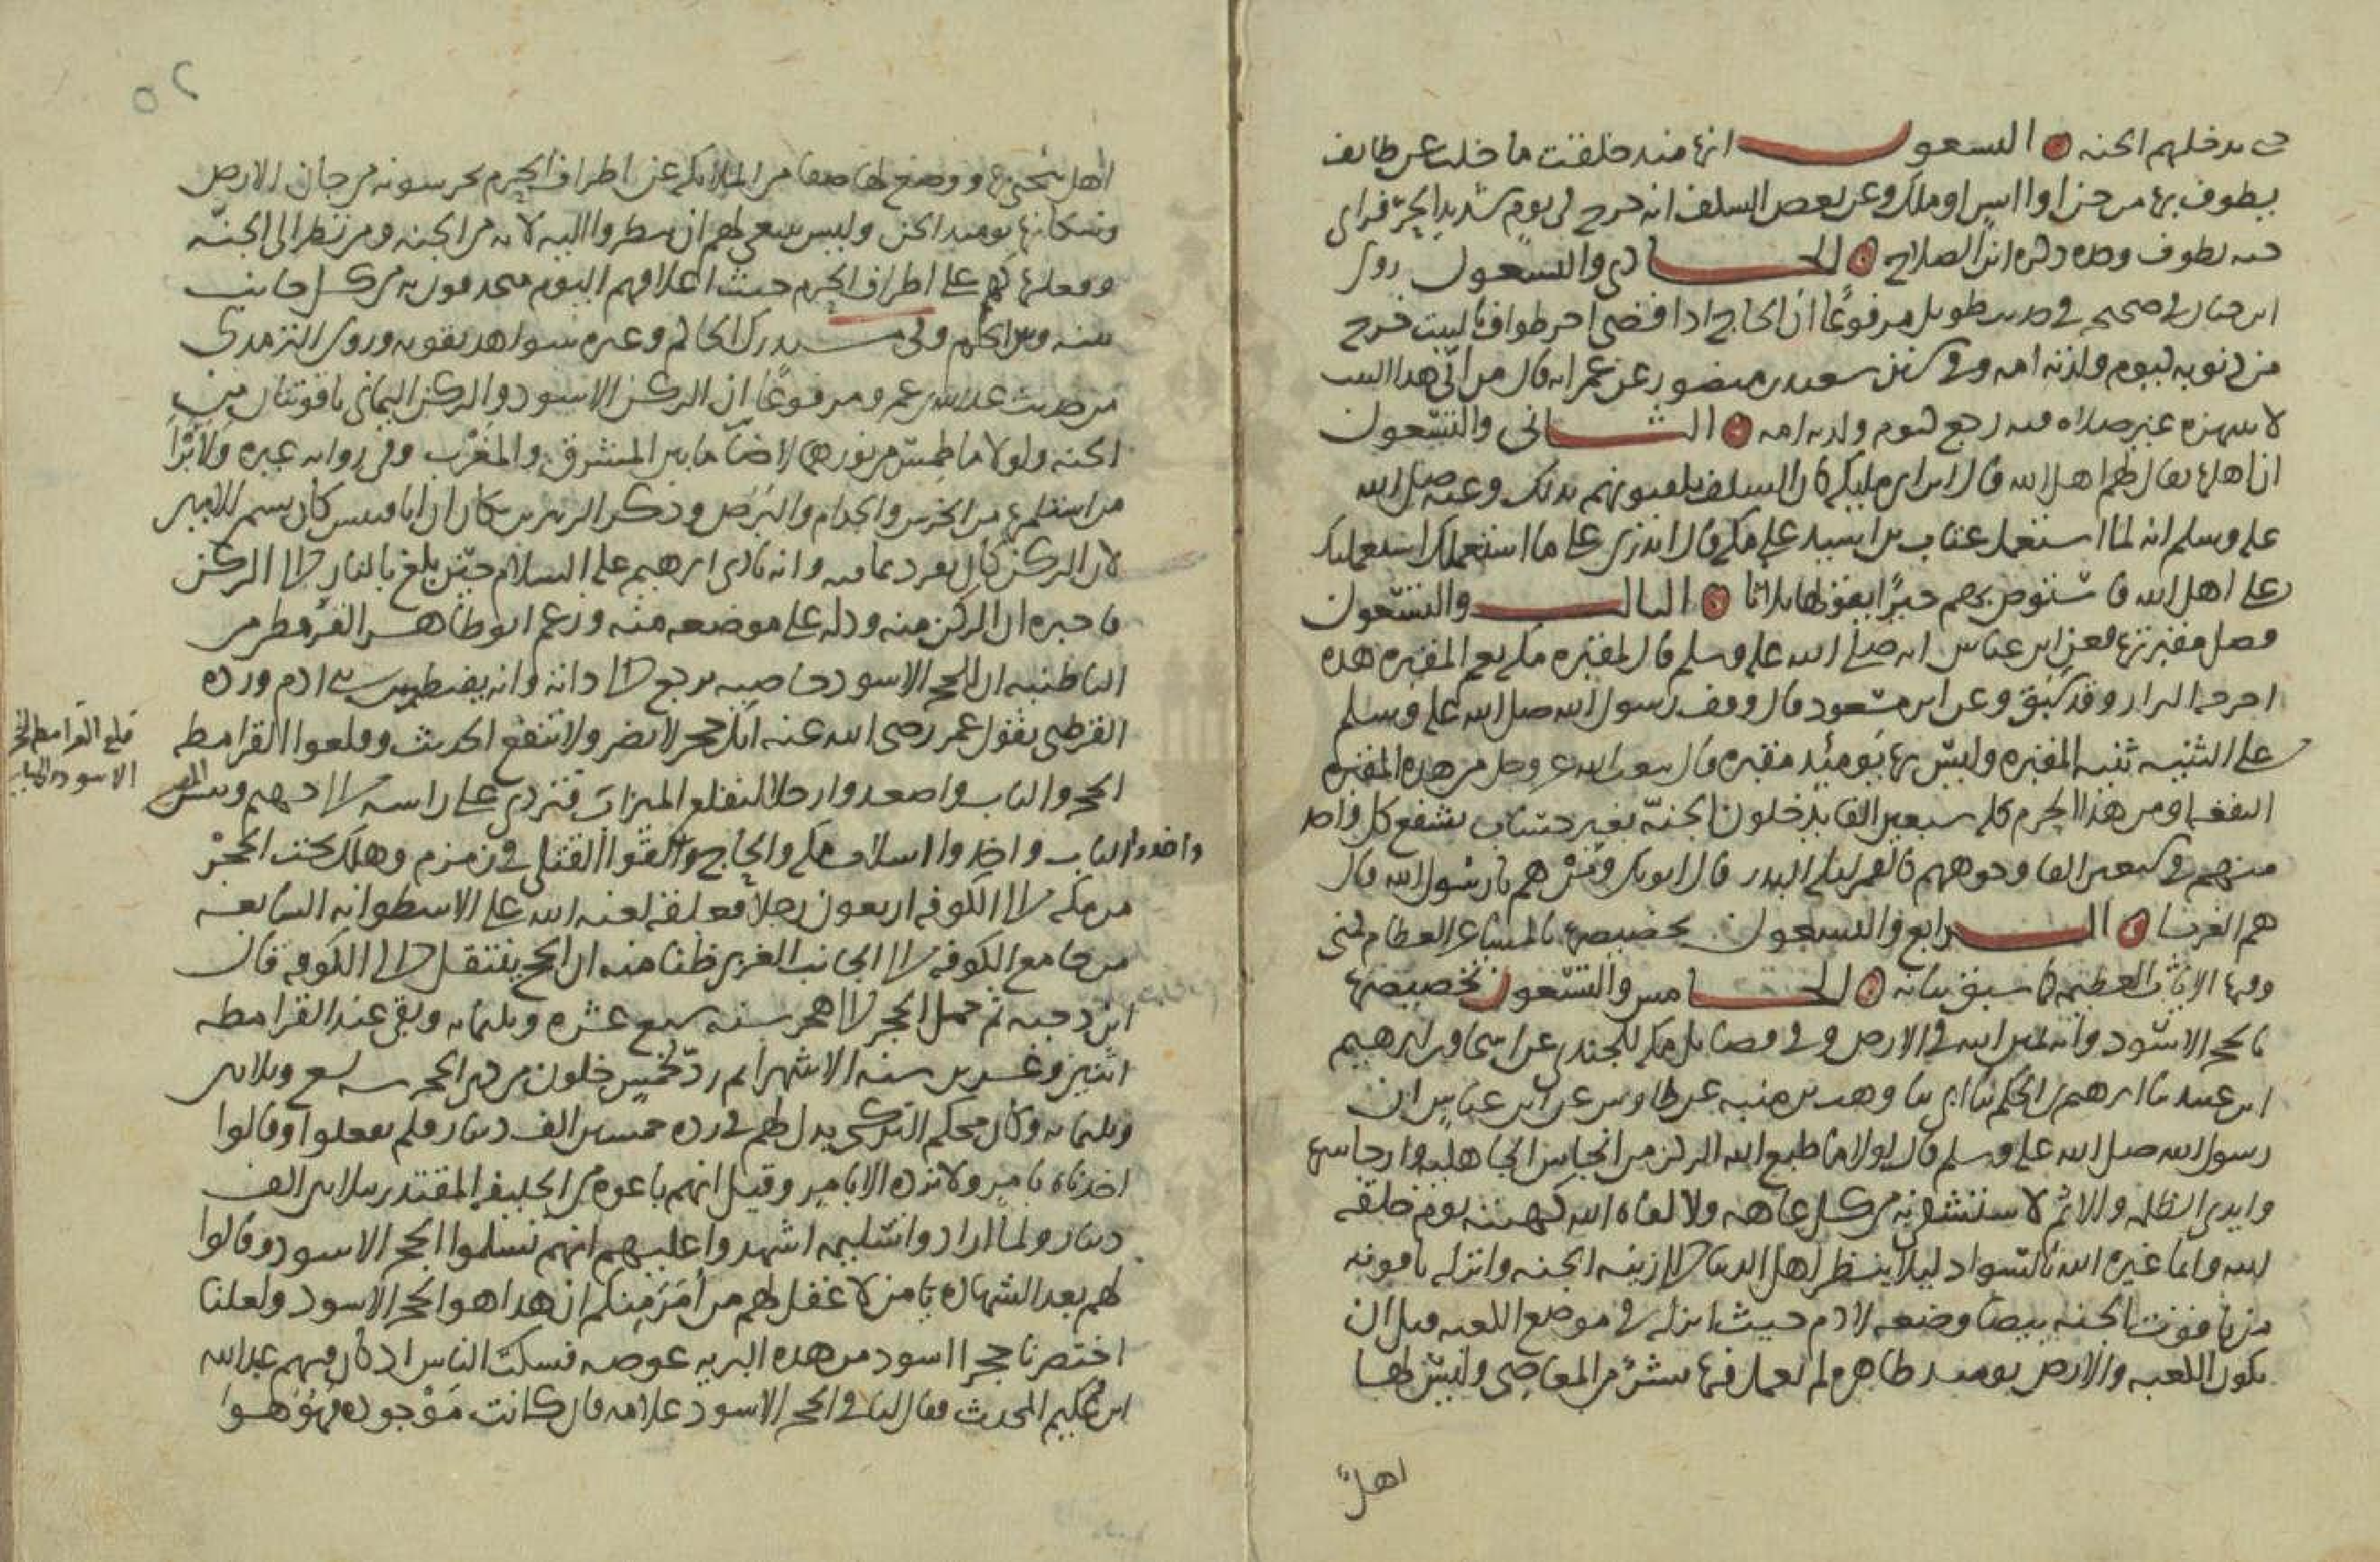 حتى يدخلهم الجنه ۞ التسعون انها منذ خلقت ما خلت عن طايف
يطوف بها من جن او انس او ملك وعن بعض السلف انه خرج في يوم شديد الحر فراى
حيه تطوف وحده ذكره ابن الصلاح ۞ الحادي والتسعون روى
ابن حبان في صحيحه في حديث طويل مرفوعًا ان الحاج اذا قضى اخر طوافه بالبيت خرج
من ذنوبه كيوم ولدته امه وفي سنن سعيد بن منصور عن عمر انه قال من اتى هذا البيت
لا ينهزه غير صلاه فيه رجع كيوم ولدته امه ۞ الثاني والتسعون
ان اهلها يقال لهم اهل الله قال ابن ابي مليكه كان السلف يلقبونهم بذلك وعنه صلى الله
عليه وسلم انه لما استعمل عتاب بن اسيد على مكه قال اتدري على ما استعملتك استعملتك
على اهل الله فاستوص بهم خيرًا يقولها ثلاثا ۞ الثالث والتسعون
فضل مقبرتها فعن ابن عباس انه صلى الله عليه وسلم قال لمقبره مكه نعم المقبره هذه
اخرجه البزار وقد سبق وعن ابن مسعود قال وقف رسول الله صلى الله عليه وسلم
على الثنيه ثنيه المقبره وليس بها يومئذ مقبره قال يبعث الله عز وجل من هذه المقبره
البقعه او من هذا الحرم كله سبعين الفا يدخلون الجنّه بغير حساب يشفع كل واحد
منهم في سبعين الفا وجوههم كالقمر ليله البدر قال ابو بكر ومن هم يا رسول الله قال
هم الغربا ۞ الرابع والتسعون تخصيصها بالمشاعر العظام لمنى
وفيها الايات العظيمه كما سبق بيانه ۞ الخامس والتسعون تخصيصها
بالحجر الاسود وانه يمين الله في الارض وفي فضائل مكه للجندي عن اسحاق بن ابرهيم
ابن عبيد نا ابرهيم بن الحكم نا ابي نا وهب بن منبه عن طاوس عن ابن عباس ان
رسول الله صلى الله عليه وسلم قال لولا ما طبع الله الركن من انجاس الجاهليه وارجاسها
وايدي الظلمه والاثمه لاستشفي به من كل عاهه ولالفاه الله كهيئته يوم خلقه
الله وانما غيره الله بالسواد ليلا ينظر اهل الدنيا الى زينه الجنه وانزله ياقوته
من ياقوت الجنه بيضا وضعه لادم حيث انزله في موضع الكعبه قبل ان
تكون الكعبه والارض يوميذ طاهره لم يعمل فيها بشئ من المعاصي وليس لها
اهل
٥٢
اهل ينجسونها ووضع لها صفا من الملايكه عن اطراف الحرم يحرسونه من جان الارض
وسكانها يوميذ الجن وليس ينبغي لهم ان ينظروا اليه لانه من الجنه ومن نظر الى الجنّه
دخلها فهم على اطراف الحرم حيث اعلامهم اليوم محدقون به من كل جانب
بينه وبين الحرم وفي مستدرك الحاكم وغيره شواهد تقويه وروى الترمذي
من حديث عبد الله بن عمرو مرفوعًا ان الركن الاسود والركن اليماني ياقوتتان من
الجنه ولولا ما طمس من نورهما لاضآ ما بين المشرق والمغرب وفي روايه غيره ولابرأ
من استلمها من الخرس والجذام والبرص وذكر الزبير بن بكار ان ابا قبيس كان يسمى الامين
لان الركن كان مودعا فيه وانه نادى ابرهيم عليه السلام حين بلغ بالبناء الى الركن
فاخبره ان الركن منه ودله على موضعه منه وزعم ابو طاهر القرمطي من
الباطنيه ان الحجر الاسود مغناطيس بني ادم ورده
القرطبي بقول عمر رضي الله عنه انك حجر لا تضر ولا تنفع الحديث وقلعوا القرامطه
الحجر والباب واصعدوا رجلا ليقلع الميزاب فتردى على راسه الى جهنم وبئس المصير
واخذوا الباب واخذوا اسلاب مكه والحاج والقوا القتلى في زمزم وهلك تحت الحجر
من مكه الى الكوفه اربعون رجلا فعلقه لعنه الله على الاسطوانه السابعه
من جامع الكوفه الى الجانب الغربي ظنا منه ان الحج ينتقل الى الكوفه قال
ابن دحيه ثم حمل الحجر الى هجر سنه سبع عشره وثلثمايه وبقي عند القرامطه
اثنين وعشرين سنه الا شهرا ثم ردّ لخمس خلون من ذي الحجه سنه تسع وثلاثين
وثلثمايه وكان بجكم التركي بذل لهم في رده خمسين الف دينار فلم يفعلوا وقالوا
اخذناه بامر ولا نرده الا بامر وقيل انهم باعوه من الخليفه المقتدر بثلاثين الف
دينار ولما ارادوا تسليمه اشهدوا عليهم انهم تسلموا الحجر الاسود وقالوا
لهم بعد الشهاده يا من لا عقل لهم من اين لكم ان هذا هو الحجر الاسود ولعلنا
احضرنا حجرا اسود من هذه البريه عوضه فسكت الناس اذ كان فيهم عبد الله
ابن عكيم المحدث فقال لنا في الحجر الاسود علامه فان كانت موجوده فهو هو
قلع القرامطه الحجر
الاسود والباب